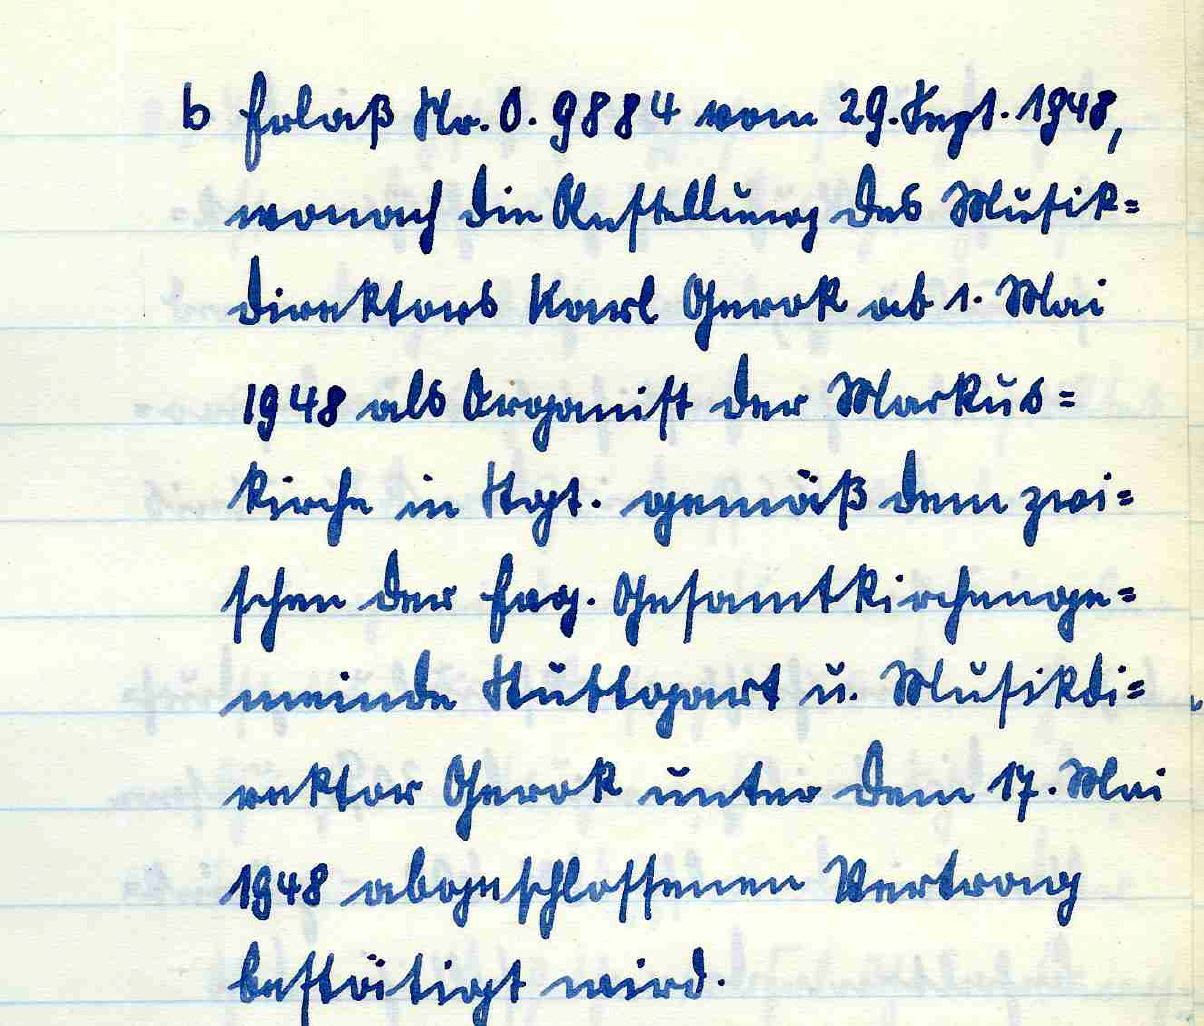 b Erlaß Nr. O. 9884 vom 29. Sept. 1948,
wonach die Anstellung des Musik=
direktors Karl Gerok ab 1. Mai
1948 als Organist der Markus=
kirche in Stgt. gemäß dem zwi=
schen der Evg. Gesamtkirchenge=
meinde Stuttgart u. Musikdi=
rektor Gerok unter dem 17. Mai
1948 abgeschlossenen Vertrag
bestätigt wird.